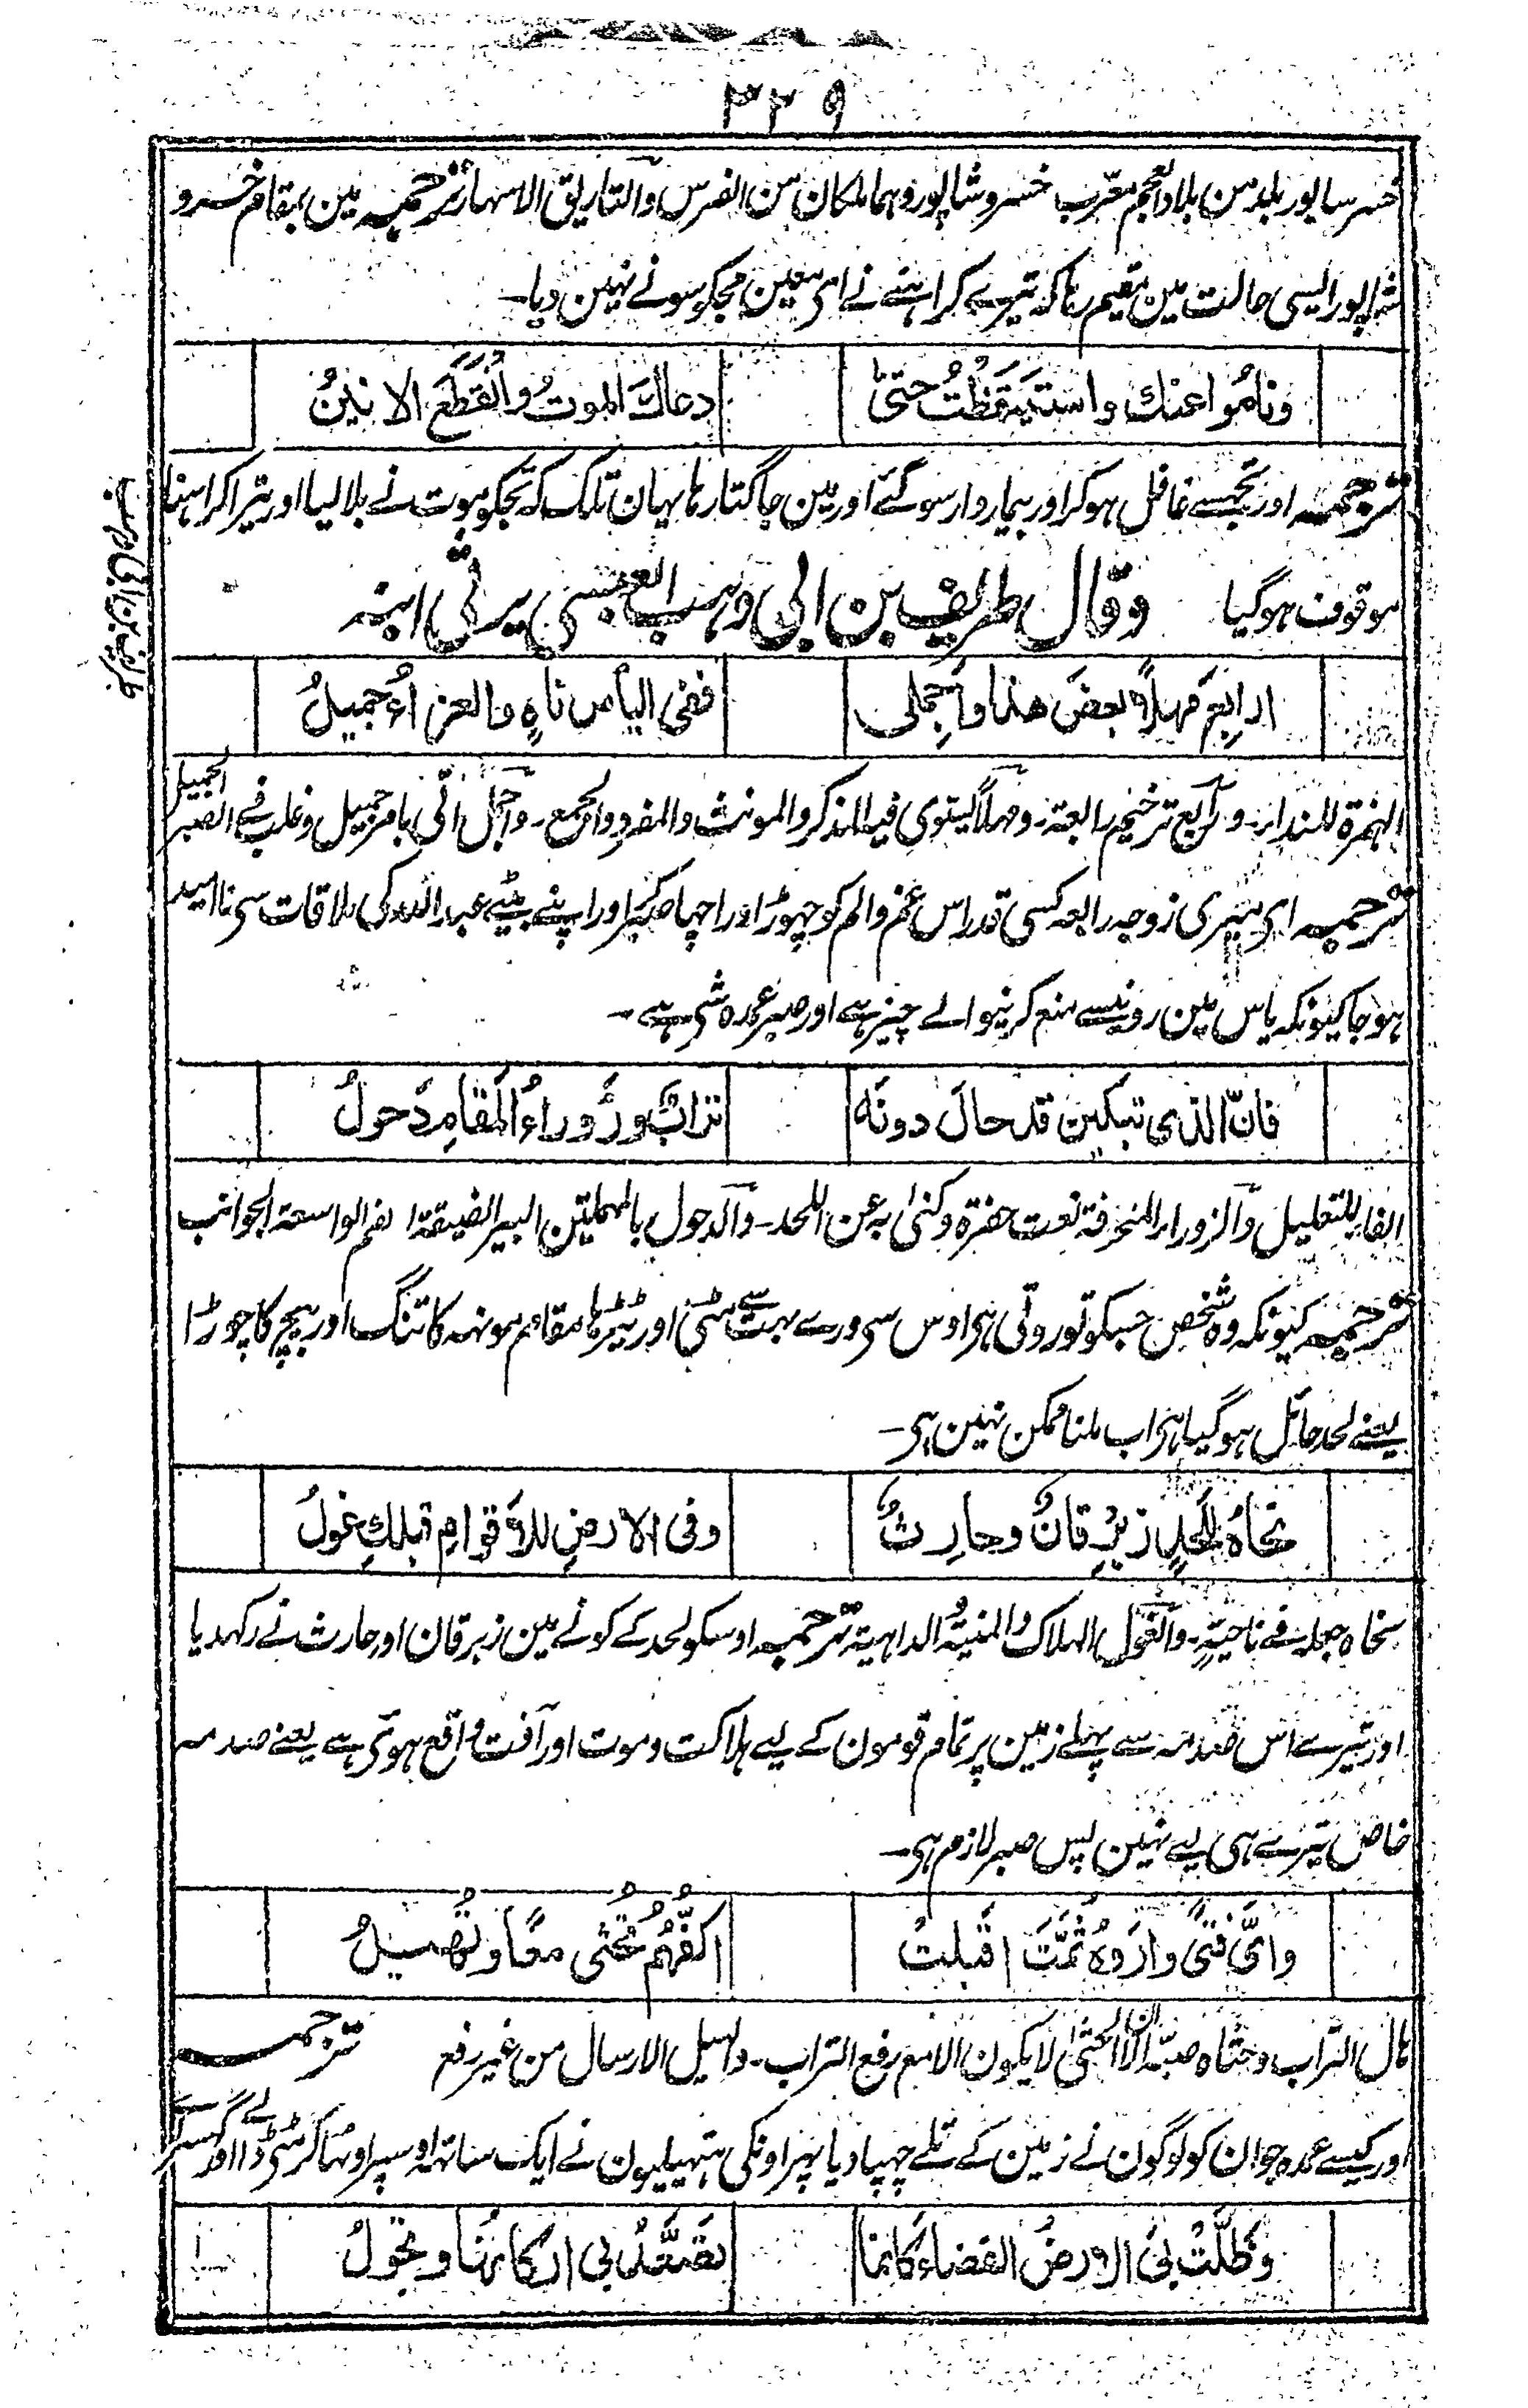 ۳۳۹
خسر سابور بلد من بلاد العجم معرّب خسرو شاپور وهما ملكان من الفرس والتاریق الاسهار ترجمہ مین بمقام خسرو
شاپور ایسی حالت مین مقیم رہا کہ تیرے کراہنے نے ای معین مجکو سونے نہین دیا۔
ونامُوا عنك واستيقظتُ حتىٰ دعاك الموتُ وانْقَطَعَ الانينُ
ترجمہ اور تجہسے غافل ہوکر اور بیماردار سو گئے اور مین جاگتا رہا یہان تلک کہ تجکو موت نے بلا لیا اور تیرا کراہنا
موقوف ہو گیا وقال طريف بن ابی وهب العبسی يرثی ابنه
ارابِعَ مَهلاً بعضَ هذا واَجمِلی ففی الیأس ناہٍ والعزاءُ جمیلُ
الہمزة للنداء۔ ورابع ترخیم رابعة۔ ومہلاً یستوی فیہ المذکر والمونث والمفرد والجمع۔ واجمل اتی بامر جمیل وغلب فے الصبر الجمیل
ترجمہ ای میری زوجہ رابعہ کسی قدر اس غم والم کو چہوڑ اور اچہا صبر کر اور اپنے بیٹے عبد اللہ کی ملاقات سی ناامید
ہو جا کیونکہ یاس مین رونیسے منع کرنیوالے چیز ہے اور صبر عمدہ شی ہے۔
فانّ الذی تبکین قد حالَ دونَه ترابٌ وزَوراءُ المَقامِ دَحولُ
الفاء للتعلیل والزوراء المنحرفة نعت حفرة وکنیٰ بہ عن اللحد۔ والدحول بالمہملتین البیر الضیقة الفم الواسعة الجوانب
ترجمہ کیونکہ وہ شخص جسکو تو روتی ہی اوس سی ورے بہت سے مٹی اور ٹیڑہا مقام مونہہ کا تنگ اور بیچ کا چوڑا
یعنے لحد حائل ہو گیا ہی اب ملنا ممکن نہین ہی۔
نحاهُ لِلَحدٍ زِبْرِقانٌ وحارِثٌ وفی الارضِ للاَقوامِ قبلكِ غولُ
نحاہ جعلہ فے ناحیةٍ۔ والغول الہلاک والمنیة والداہیة ترجمہ اوسکو لحد کے کونے مین زبرقان اور حارث نے رکہدیا
اور تیرے اس صدمہ سے پہلے زمین پر تمام قومون کے لیے ہلاکت وموت اور آفت واقع ہوئی ہے یعنے صدمہ
خاص تیرے ہی لیے نہین پس صبر لازم ہی۔
وایُّ فتیً وارَوهُ ثُمَّتَ اقبلتْ اکفُّهُم تُحثی معًا وتَهیلُ
ہال التراب وحثاہ صبّہ الا ان الحثی لا یکون الا مع رفع التراب۔ والہیل الارسال من غیر رفع ترجمہ
اور کیسے عمدہ جوان کو لوگون نے زمین کے تلے چہپا دیا پہر اونکی ہتیلیون نے ایک ساتہہ اوسپر اوٹہا کر مٹی ڈالے اور گسرا کے
وظلَّتْ بیَ الارضُ الفضاءُ كانما تَصَعَّدُ بی ارکانُها وتجُولُ